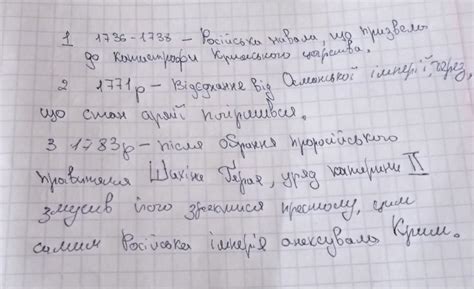 1 1736-1738 – Російська навала, що призвела
до катастрофи Кримського царства.
2 1771р – Відєднання від Османської імперії, через,
що стан армії погіршився.
3 1783р – після обрання проросійського
правителя Шахіна Герая, уряд катерини II
змусив його зректися престолу, цим
самим Російська імперія анексувала Крим.